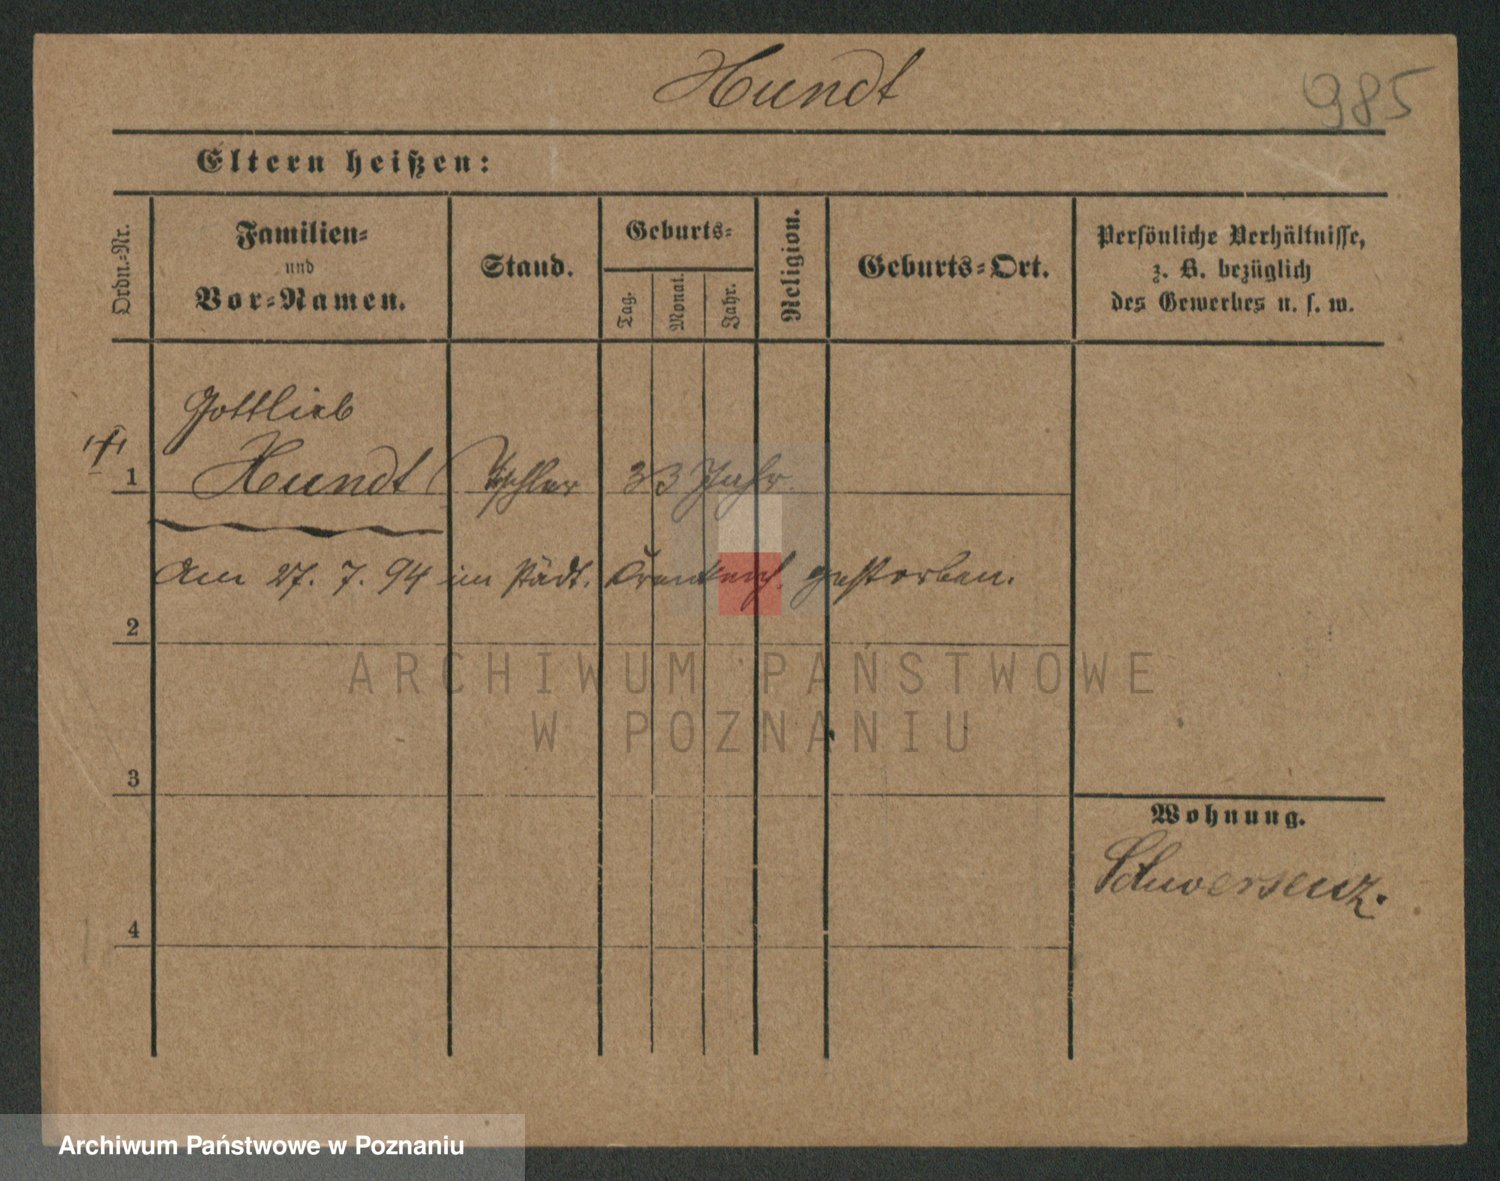 Hundt
985
Eltern heißen:
Ordn.-Nr.
Familien-
und
Vor-Namen.
Stand.
Geburts-
Tag.
Monat.
Jahr.
Religion.
Geburts-Ort.
Persönliche Verhältnisse,
z. B. bezüglich
des Gewerbes u. s. w.
Gottlieb
1 Hundt 33 Jahr.
Am 27. 7. 94 im städt. Krankenh. gestorben.
2
ARCHIWUM PAŃSTWOWE
W POZNANIU
3
Wohnung.
Schwersenz.
4
Archiwum Państwowe w Poznaniu